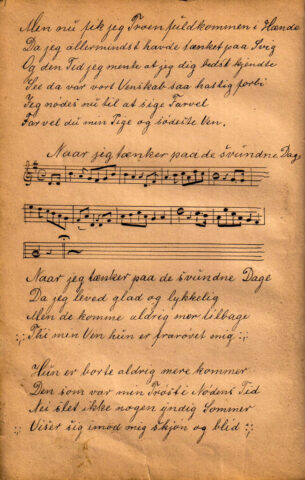 Men nu fik jeg Troen fuldkommen i Hænde
Da jeg allermindst havde tænket paa Svig
Og den Tid jeg mente at jeg dig bedst kjendte
See da var vort Venskab saa hastig forbi
Jeg nødes nu til at sige Farvel
Farvel du min Pige og sødeste Ven.
Naar jeg tænker paa de svundne Dage
Naar jeg tænker paa de svundne Dage
Da jeg leved glad og lykkelig
Men de komme aldrig mer tilbage
Thi min Ven hun er frarøvet mig :;:
Hun er borte aldrig mere kommer
Den som var min Trøst i Nødens Tid
Nei slet ikke nogen yndig Sommer
Viser sig imod mig skjøn og blid :;: